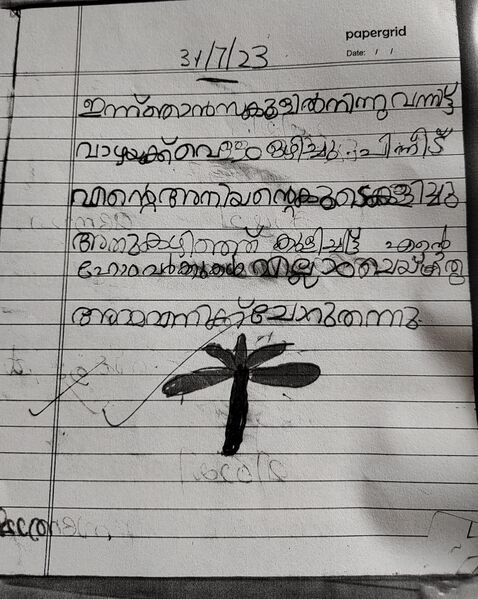 papergrid
Date: / /
31/7/23
ഇന്ന് ഞാൻ സ്കൂളിൽ നിന്നു വന്നിട്ട്
വാഴക്ക് വെള്ളം ഒഴിച്ചു പിന്നീട്
എന്റെ അനിയന്റെ കൂടെ കളിച്ചു
അതുകഴിഞ്ഞ് കുളിച്ചിട്ട് എന്റെ
ഹോംവർക്കുകൾ എല്ലാം ചെയ്തു
അമ്മ എനിക്ക് ചോറുതന്നു.